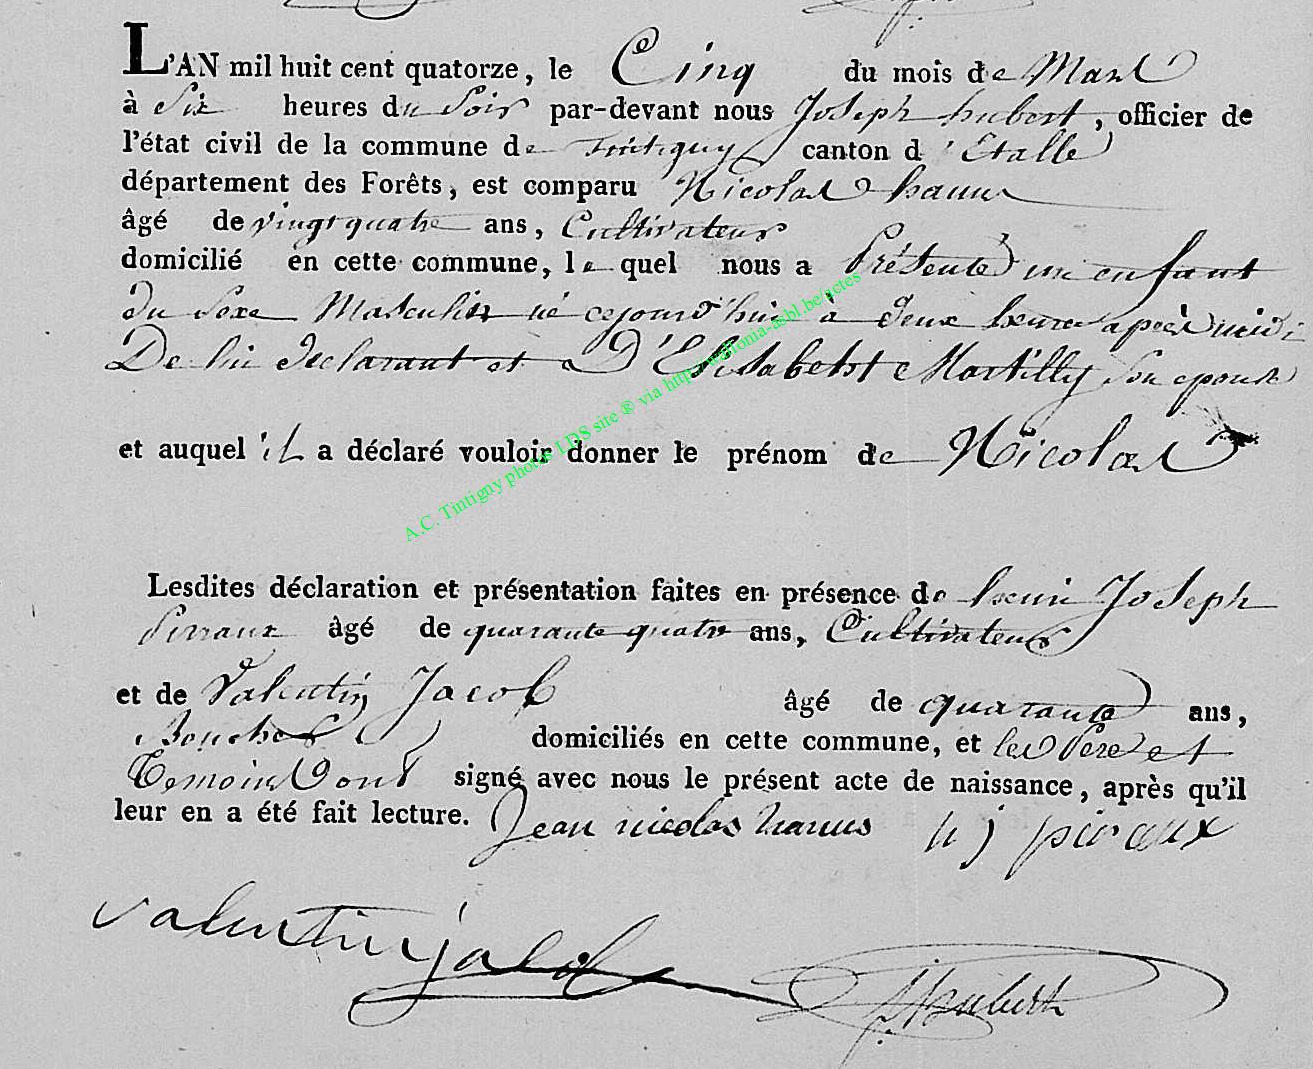 L'AN mil huit cent quatorze, le Cinq du mois de Mars
à Six heures du Soir par-devant nous Joseph hubert, officier de
l'état civil de la commune de Tintigny canton d'Etalle
département des Forêts, est comparu Nicolas hanus
âgé de vingt quatre ans, Cultivateur
domicilié en cette commune, lequel nous a Présenté un enfant
du Sexe Masculin né cejourd'hui à deux heures après midi
De lui declarant et D'Elisabeth Martilly Son epouse
et auquel il a déclaré vouloir donner le prénom de Nicolas
A.C. Tintigny photos LDS site ® via http://wallonia-asbl.be/actes
Lesdites déclaration et présentation faites en présence de henri Joseph
Pirraux âgé de quarante quatre ans, Cultivateur
et de Valentin Jacob âgé de quarante ans,
domiciliés en cette commune, et les Pere et
Temoins ont signé avec nous le présent acte de naissance, après qu'il
leur en a été fait lecture. Jean nicolas hanus h j piraux
valentin jacob
hubert